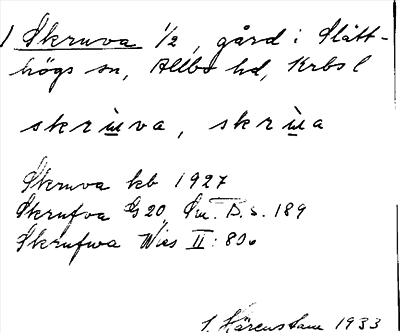 1 Skruva 1/2, gård i Slätt-
högs sn, Allbo hd, Krbs l
skrùva, skrùa
Skruva kb 1927
Skrufva G 20, Sm. B. s. 189
Skrufwa Wies II: 80
Härenstam 1933